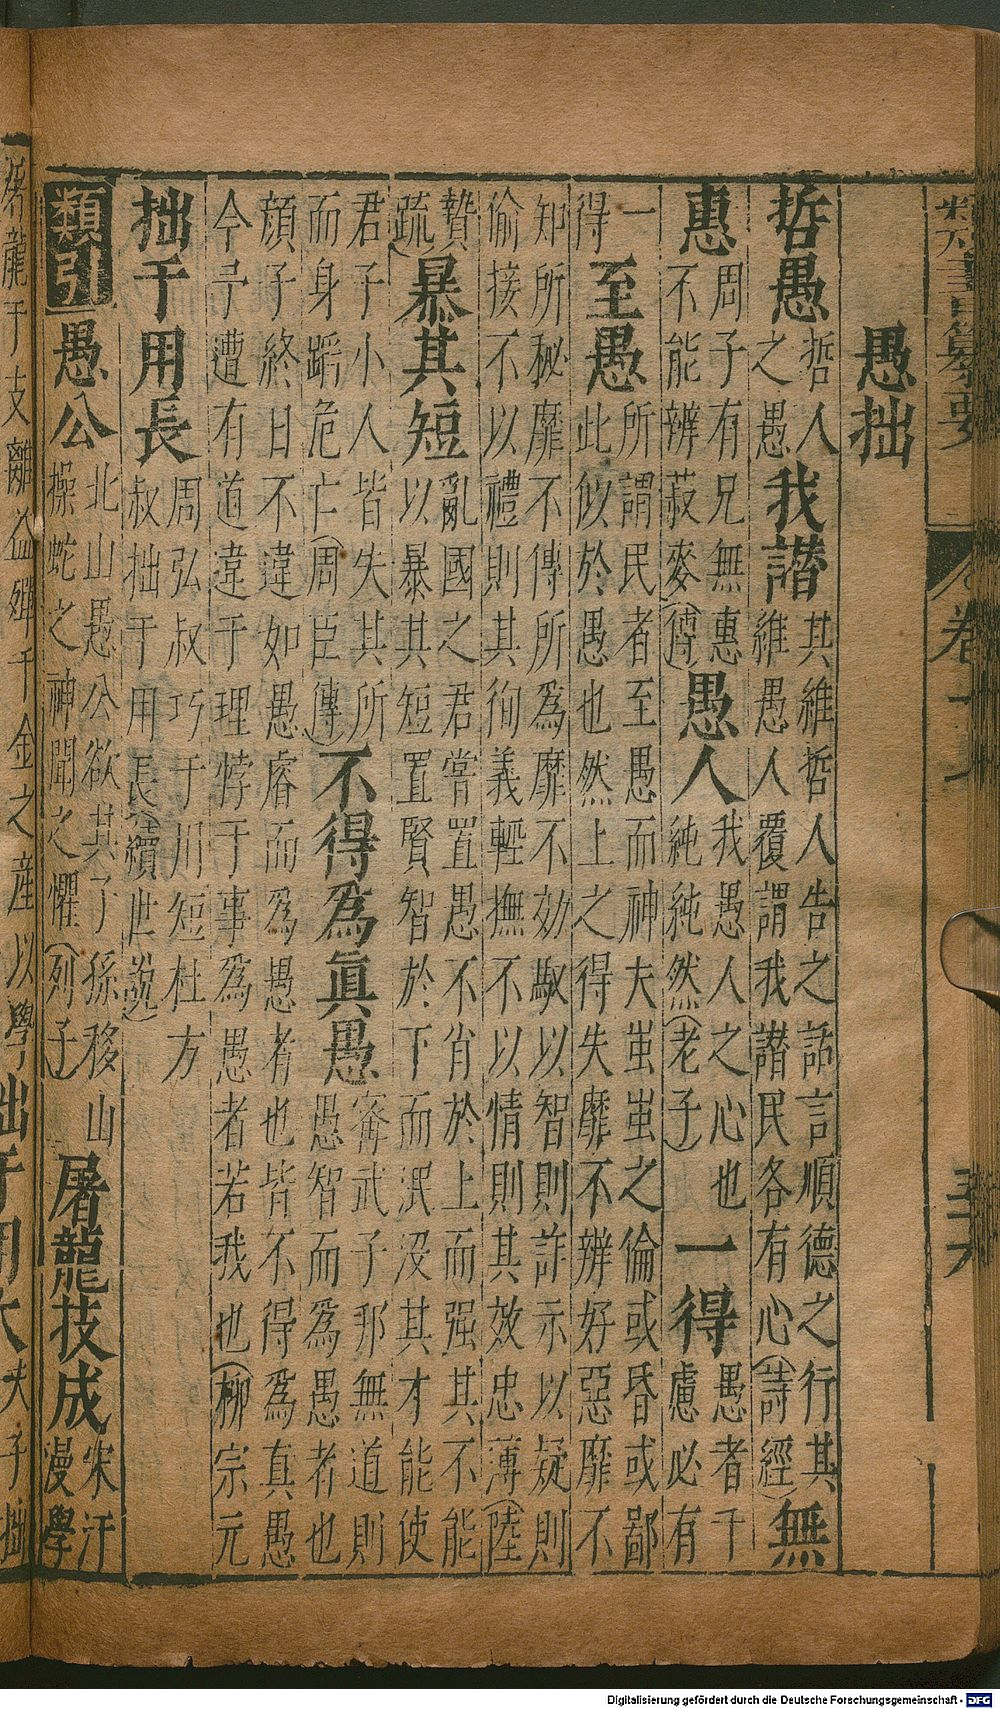 書纂要 卷
愚拙
哲愚 哲人之愚 我譖 其維哲人告之話言順德之行其維愚人覆謂我譖民各有心(詩經) 無
惠 周子有兄無惠不能辨菽麥(傳) 愚人 我愚人之心也純純然(老子) 一得 愚者千慮必有
一得 至愚 所謂民者至愚而神夫蚩蚩之倫或昏或鄙此似於愚也然上之得失靡不辨好惡靡不
知所秘靡不傳所爲靡不効馭以智則詐示以疑則偷接不以禮則其徇義輕撫不以情則其效忠薄(陸
贄疏) 暴其短 亂國之君嘗置愚不肖於上而强其不能以暴其短置賢智於下而泯沒其才能使
君子小人皆失其所而身蹈危亡(周臣傳) 不得爲眞愚 甯武子邦無道則愚智而爲愚者也
顔子終日不違如愚睿而爲愚者也皆不得爲真愚今予遭有道違于理悖于事爲愚者若我也(柳宗元
拙于用長 周弘叔巧于川短杜方叔拙于用長(續世説)
類引 愚公 北山愚公欲其子孫移山操蛇之神聞之懼(列子) 屠龍技成 宋汙漫學
屠龍于支離益殫千金之産以學 拙于用大 夫子拙
Digitalisierung gefördert durch die Deutsche Forschungsgemeinschaft - DFG